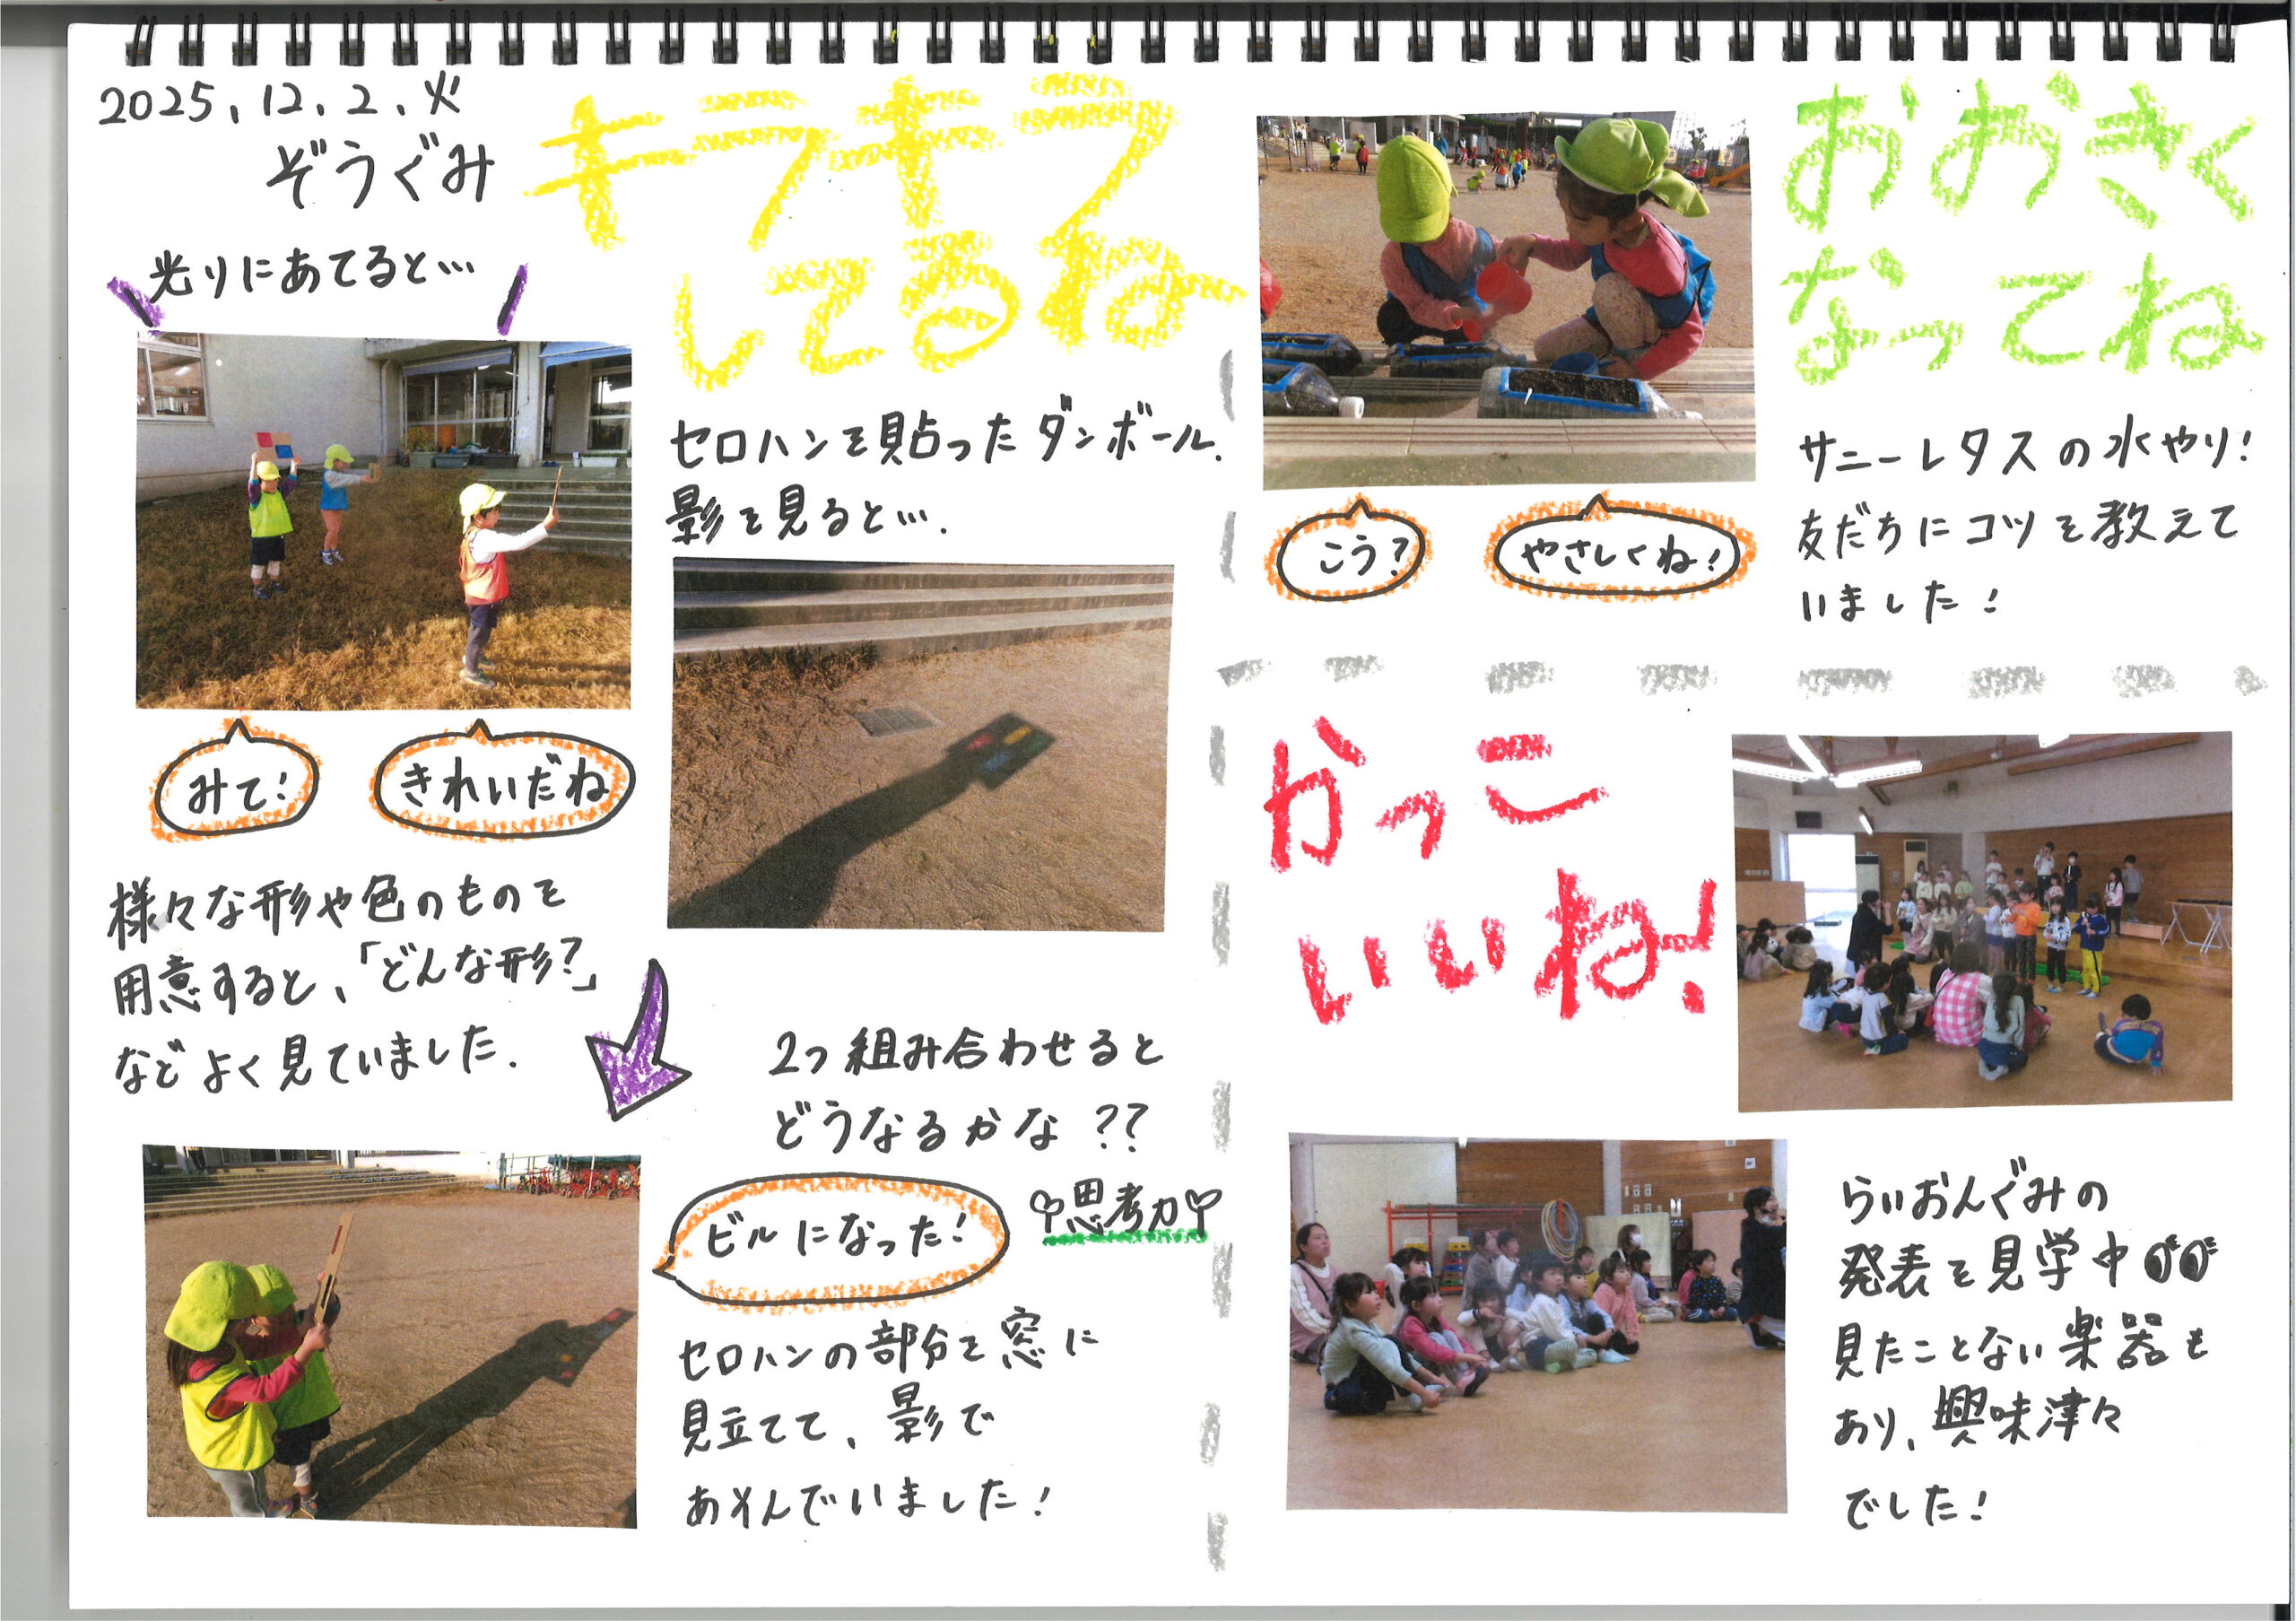 2025.12.2.火
ぞうぐみ
キラキラ
してるね
光りにあてると…
セロハンを貼ったダンボール.
影を見ると….
みて!
きれいだね
様々な形や色のものを
用意すると、「どんな形?」
などよく見ていました.
2つ組み合わせると
どうなるかな??
ビルになった!
思考力
セロハンの部分を窓に
見立てて、影で
あそんでいました!
おおきく
なってね
サニーレタスの水やり!
友だちにコツを教えて
いました!
こう?
やさしくね!
かっこ
いいね!
らいおんぐみの
発表を見学中
見たことない楽器も
あり、興味津々
でした!